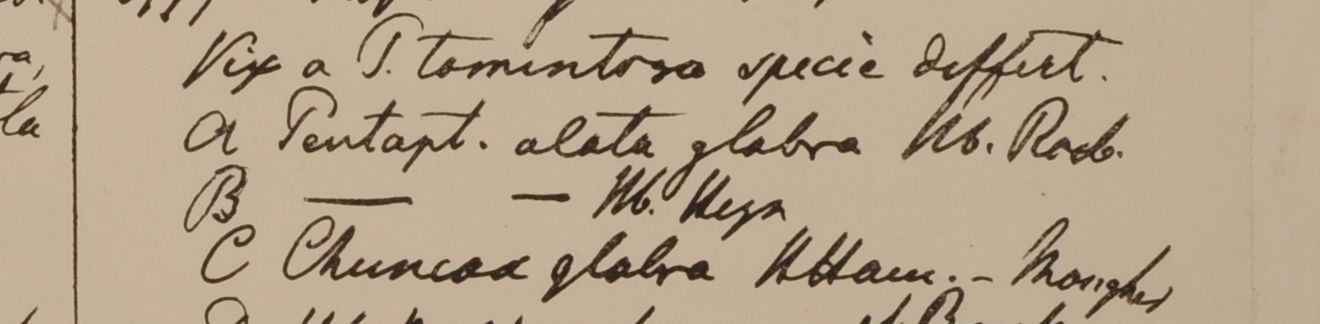 Vix a T. tomentosa speciè differt.
A Pentapt. alata glabra Hb. Roxb.
B — — Hb. Heyn
C Chuncoa glabra HHam. - Monghir